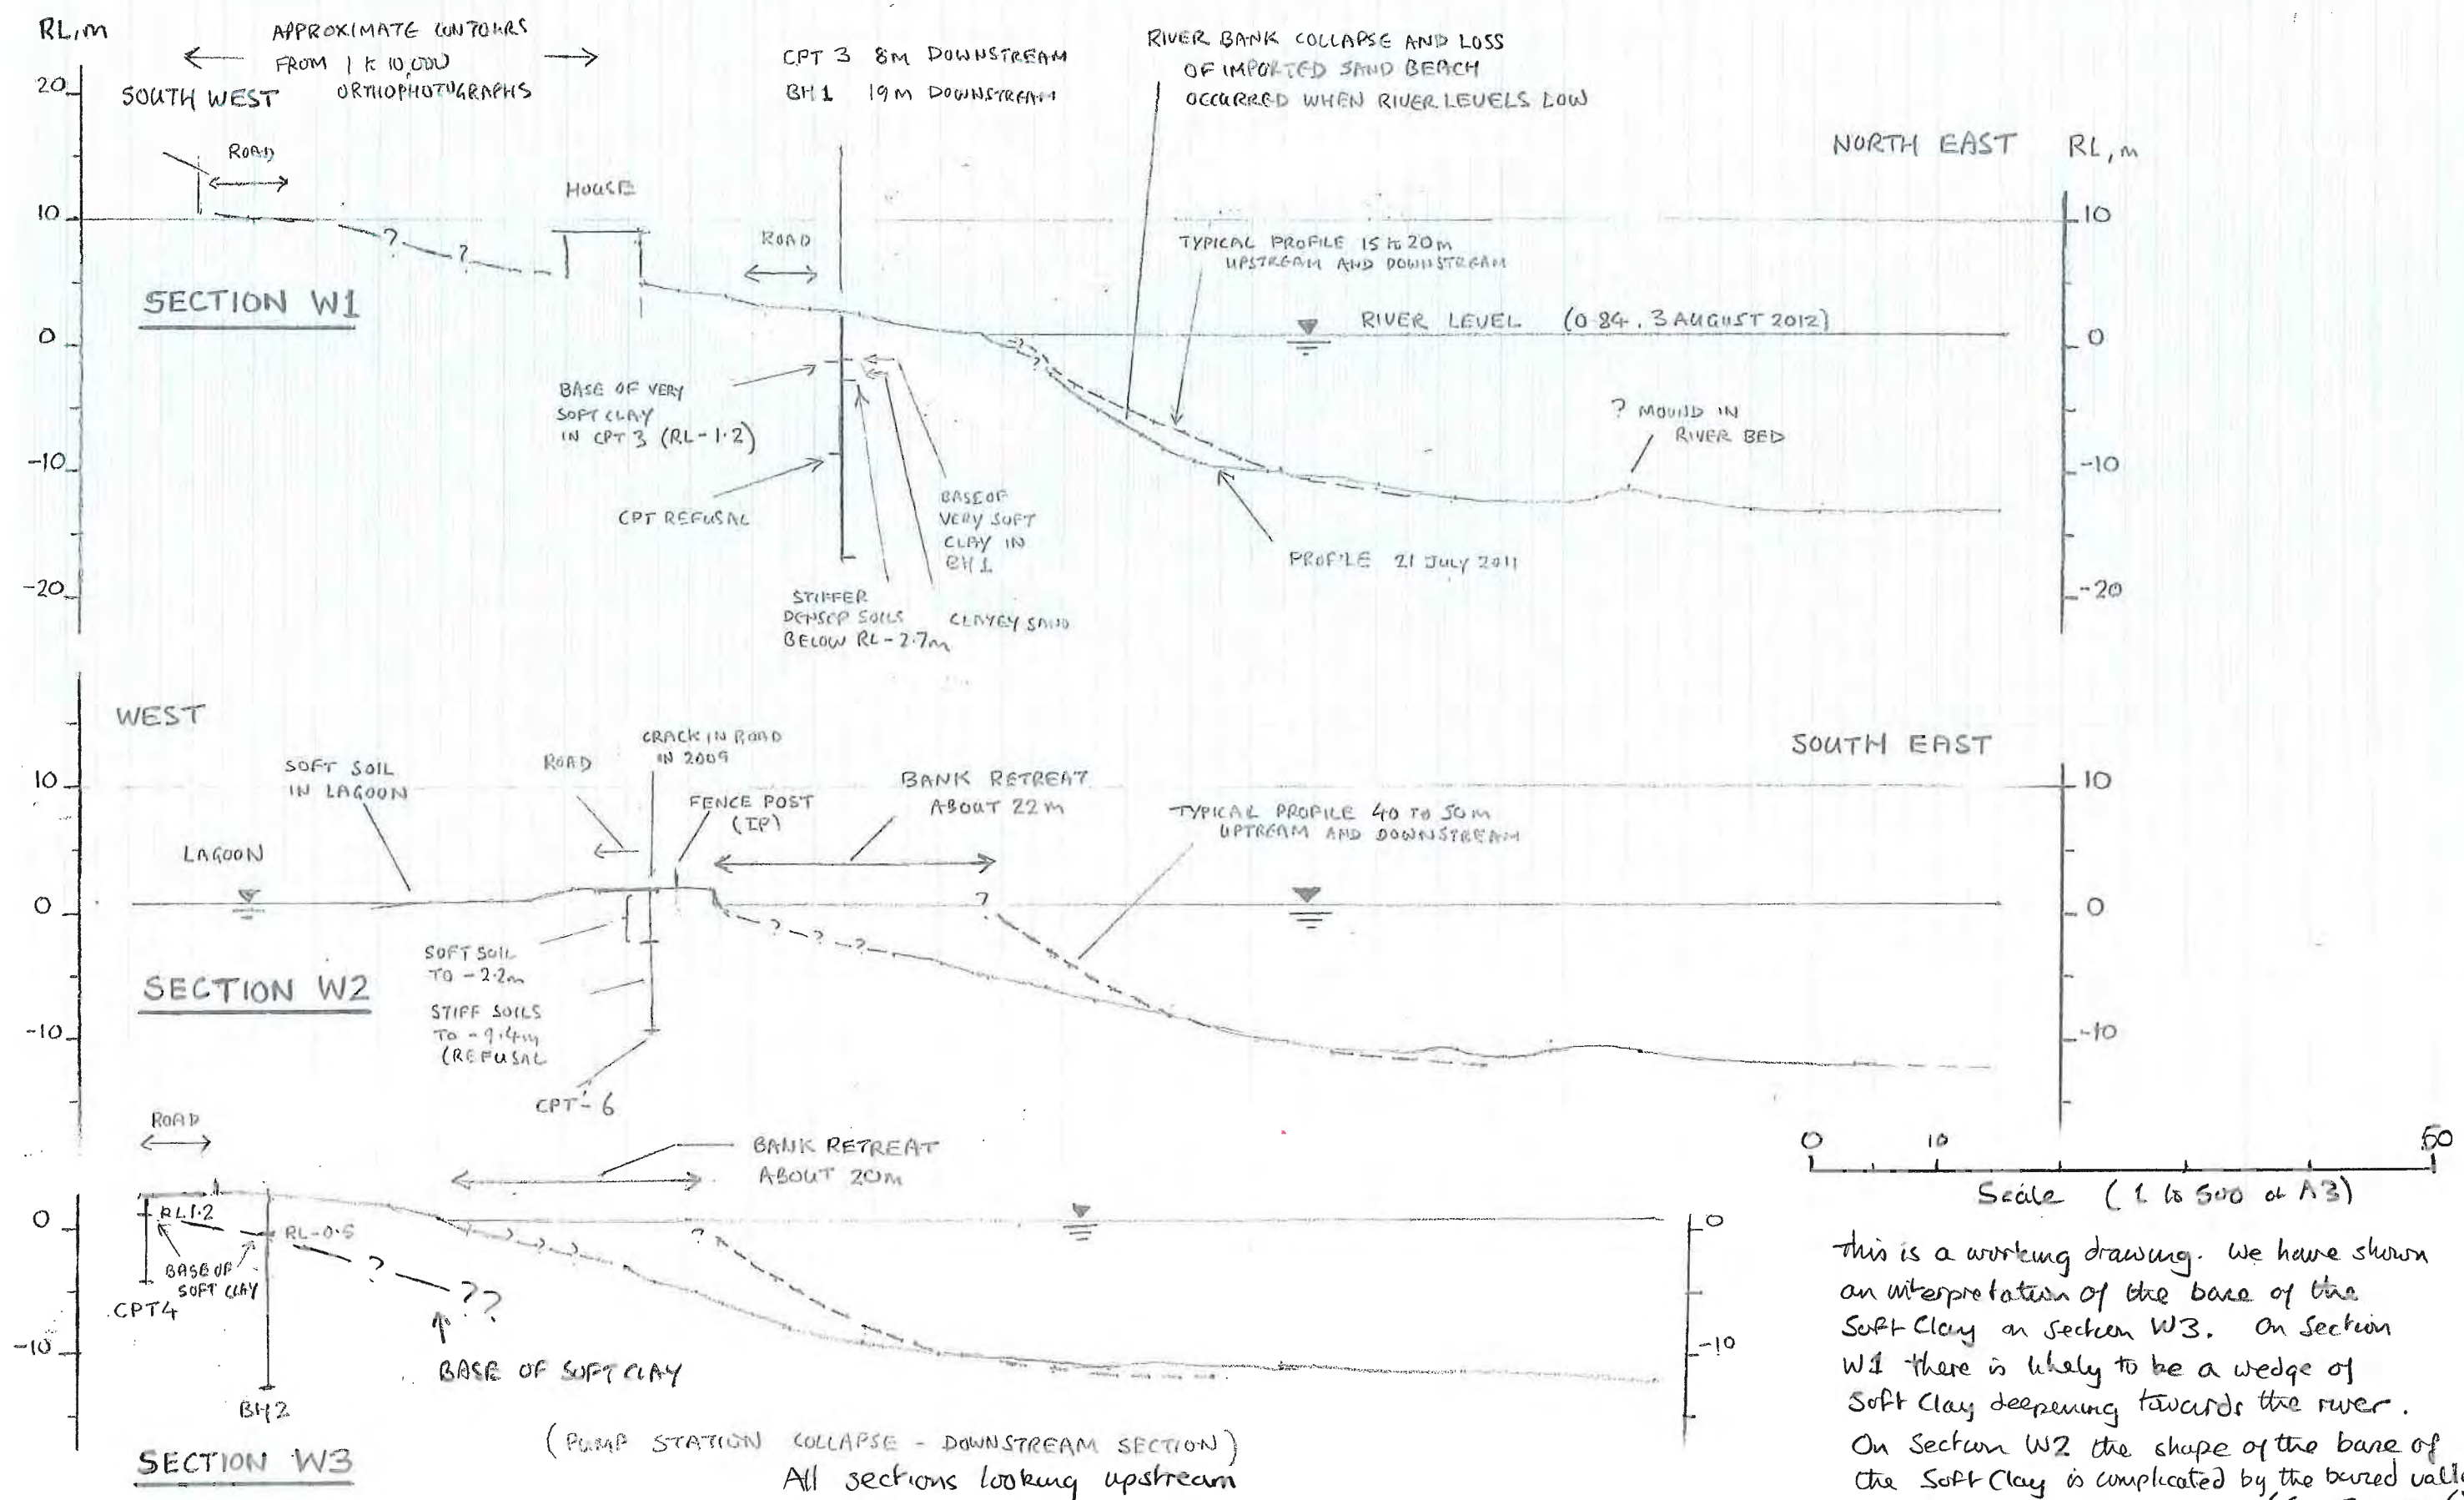 RL,m
APPROXIMATE CONTOURS
FROM 1 to 10,000
ORTHOPHOTOGRAPHS
SOUTH WEST
20
10
0
-10
-20
ROAD
HOUSE
ROAD
CPT 3 8M DOWNSTREAM
BH1 19M DOWNSTREAM
RIVER BANK COLLAPSE AND LOSS
OF IMPORTED SAND BEACH
OCCURRED WHEN RIVER LEVELS LOW
NORTH EAST RL,m
10
0
-10
-20
? ?
SECTION W1
TYPICAL PROFILE 15 to 20m
UPSTREAM AND DOWNSTREAM
RIVER LEVEL (0.84, 3 AUGUST 2012)
? ?
BASE OF VERY
SOFT CLAY
IN CPT 3 (RL-1.2)
CPT REFUSAL
BASE OF
VERY SOFT
CLAY IN
BH1
STIFFER
DENSER SOILS
BELOW RL-2.7m
CLAYEY SAND
? MOUND IN
RIVER BED
PROFILE 21 JULY 2011
WEST
SOUTH EAST
10
0
-10
SOFT SOIL
IN LAGOON
LAGOON
ROAD
CRACK IN ROAD
IN 2009
FENCE POST
(IP)
BANK RETREAT
ABOUT 22m
TYPICAL PROFILE 40 TO 50m
UPTREAM AND DOWNSTREAM
10
0
-10
?
? ? ?
SOFT SOIL
TO -2.2m
SECTION W2
STIFF SOILS
TO -9.4m
(REFUSAL
CPT-6
ROAD
BANK RETREAT
ABOUT 20m
0
-10
RL1.2
RL-0.5
BASE OF
SOFT CLAY
CPT4
BH2
? ? ?
?
? ??
BASE OF SOFT CLAY
0
-10
SECTION W3
(PUMP STATION COLLAPSE - DOWNSTREAM SECTION)
All sections looking upstream
0 10 50
Scale (1 to 500 at A3)
This is a working drawing. We have shown
an interpretation of the base of the
Soft Clay on section W3. On Section
W1 there is likely to be a wedge of
Soft Clay deepening towards the river.
On Section W2 the shape of the base of
the Soft Clay is complicated by the buried